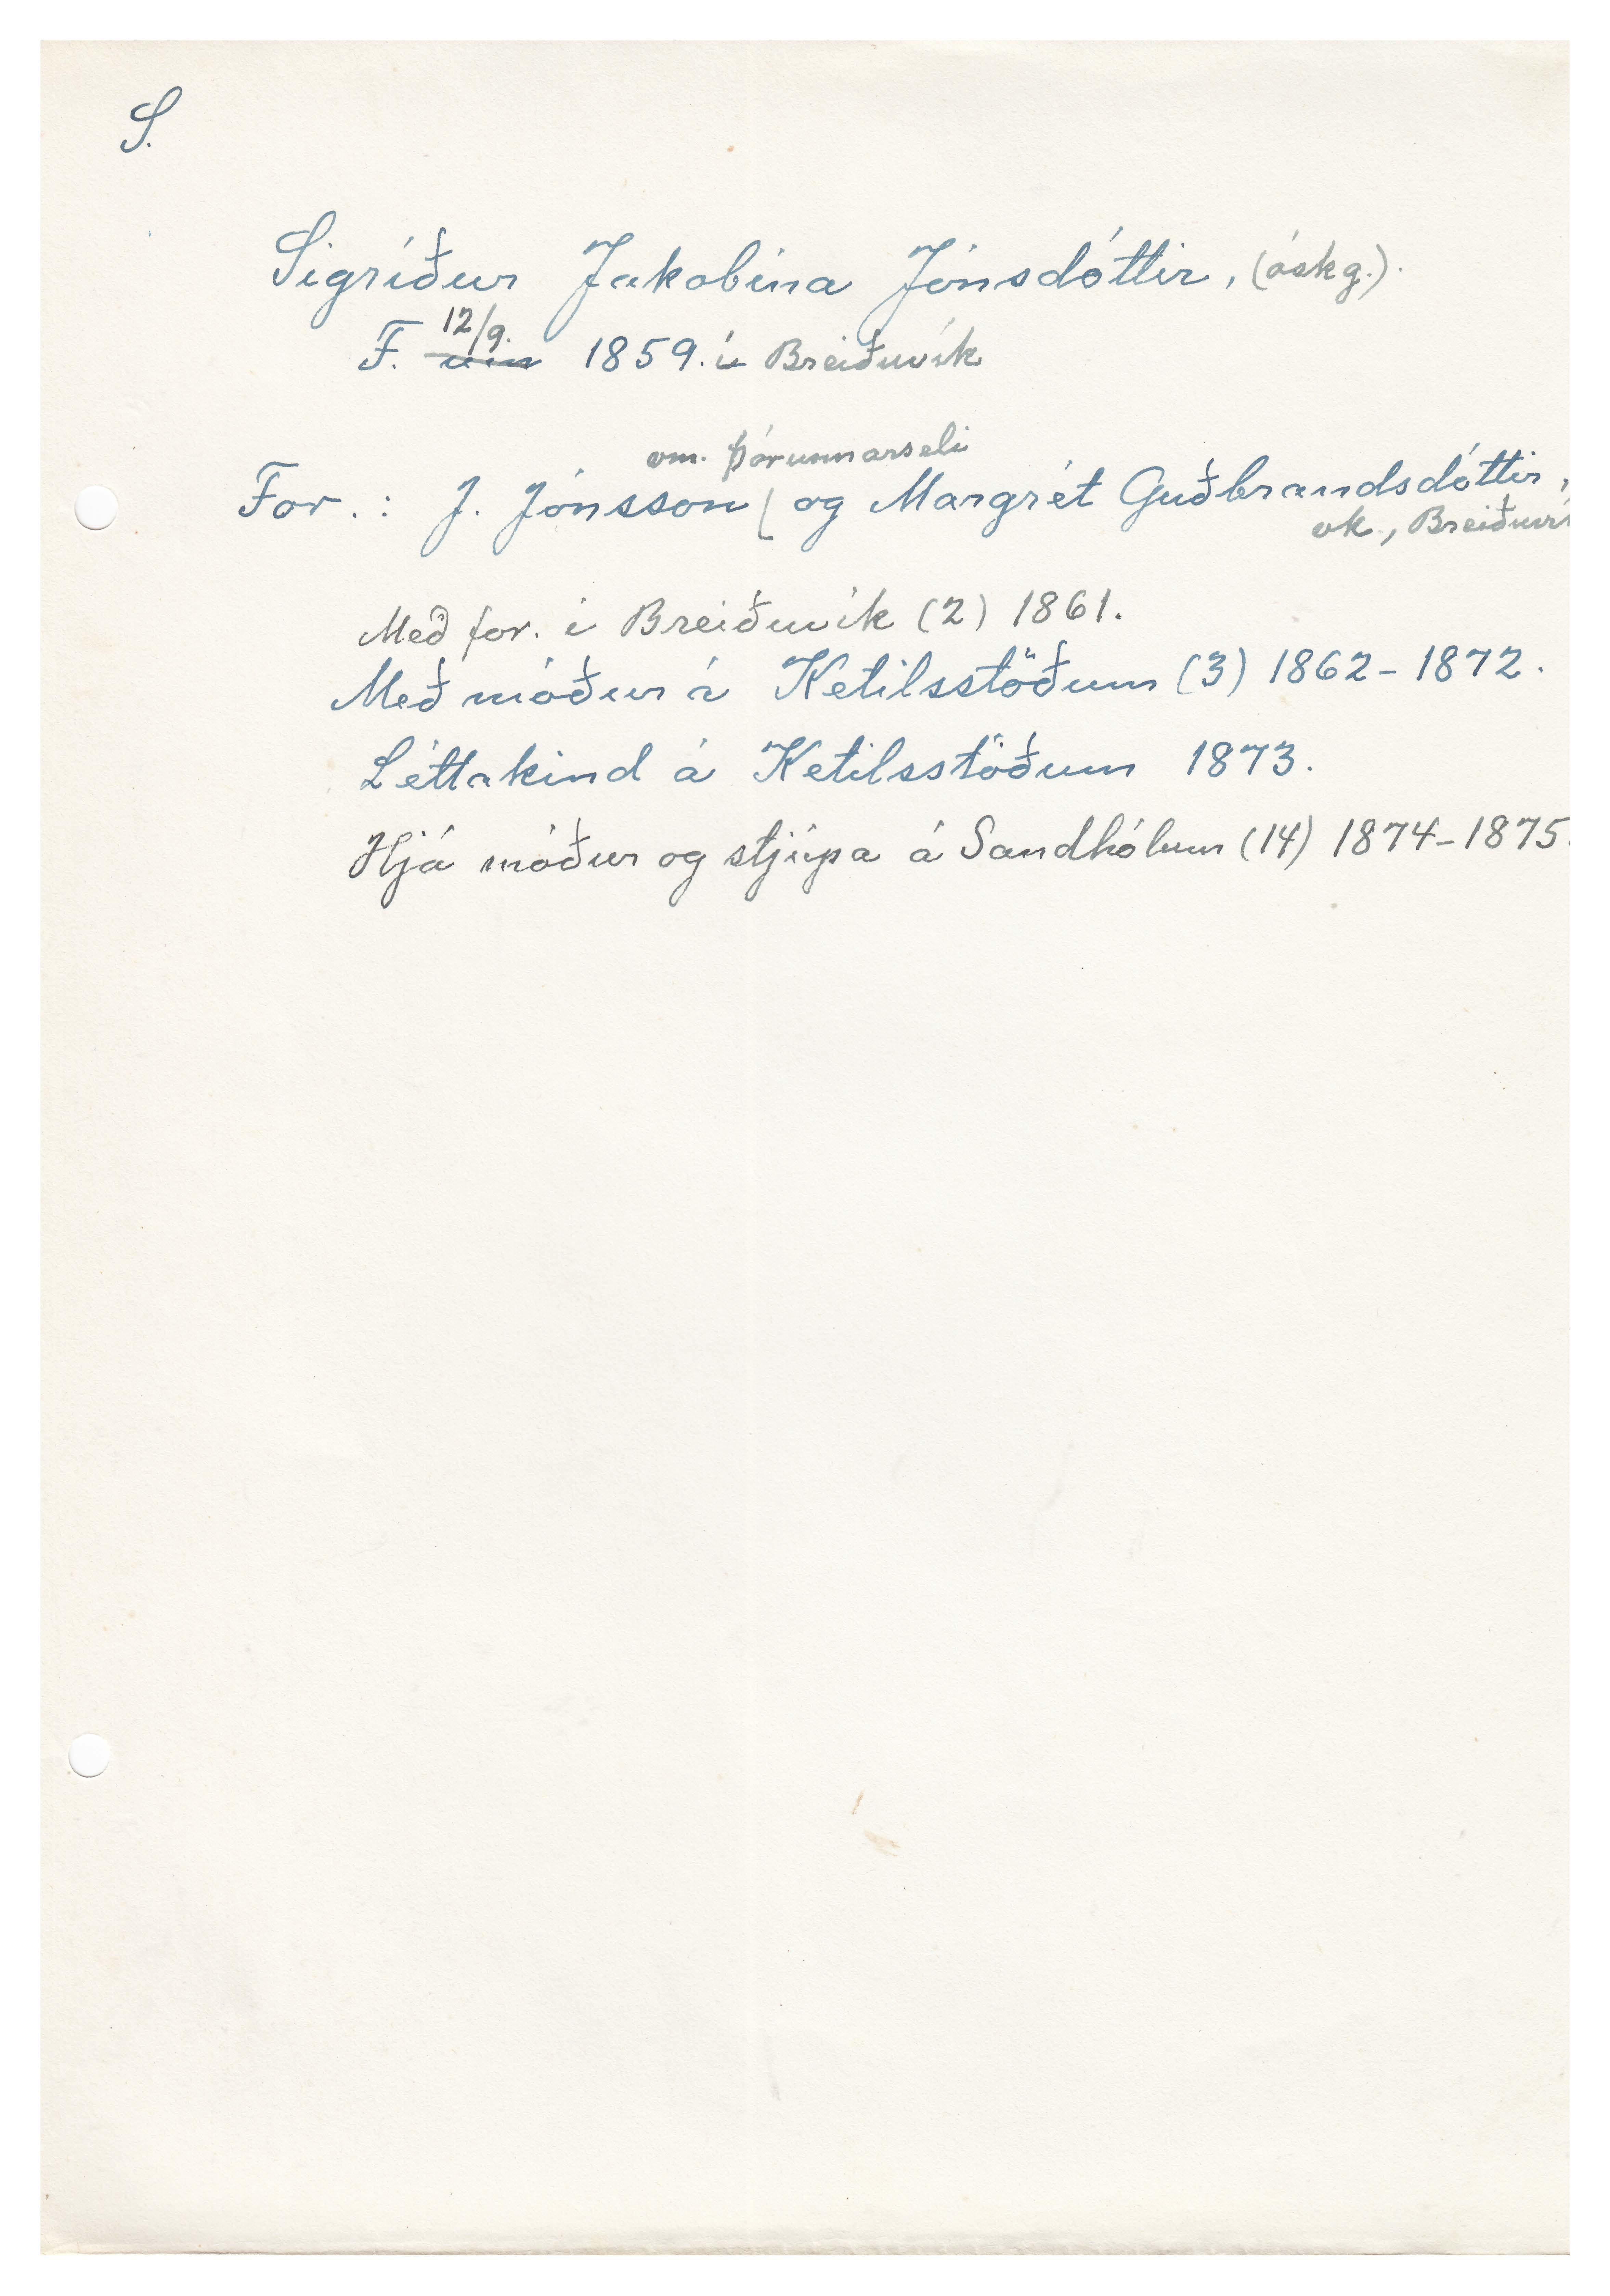 S.
Sigríður Jakobína Jónsdóttir, (óskg.).
12/9.
F. um 1859. í Breiðuvík
vm. Þórunnarseli
For.: J. Jónsson ( og Margrét Guðbrandsdóttir,
vk., Breiðuví
Með for. í Breiðuvík (2) 1861.
Með móður á Ketilsstöðum (3) 1862-1872.
Léttakind á Ketilsstöðum 1873.
Hjá móður og stjúpa á Sandhólum (14) 1874-1875.